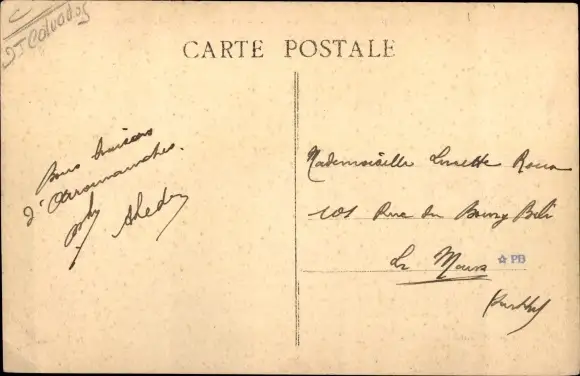 Calvados
CARTE POSTALE
Bons baisers
d'Arromanches.
Mademoiselle Lucette
101 Rue du Bourg Belé
Le Mans
☆ PB